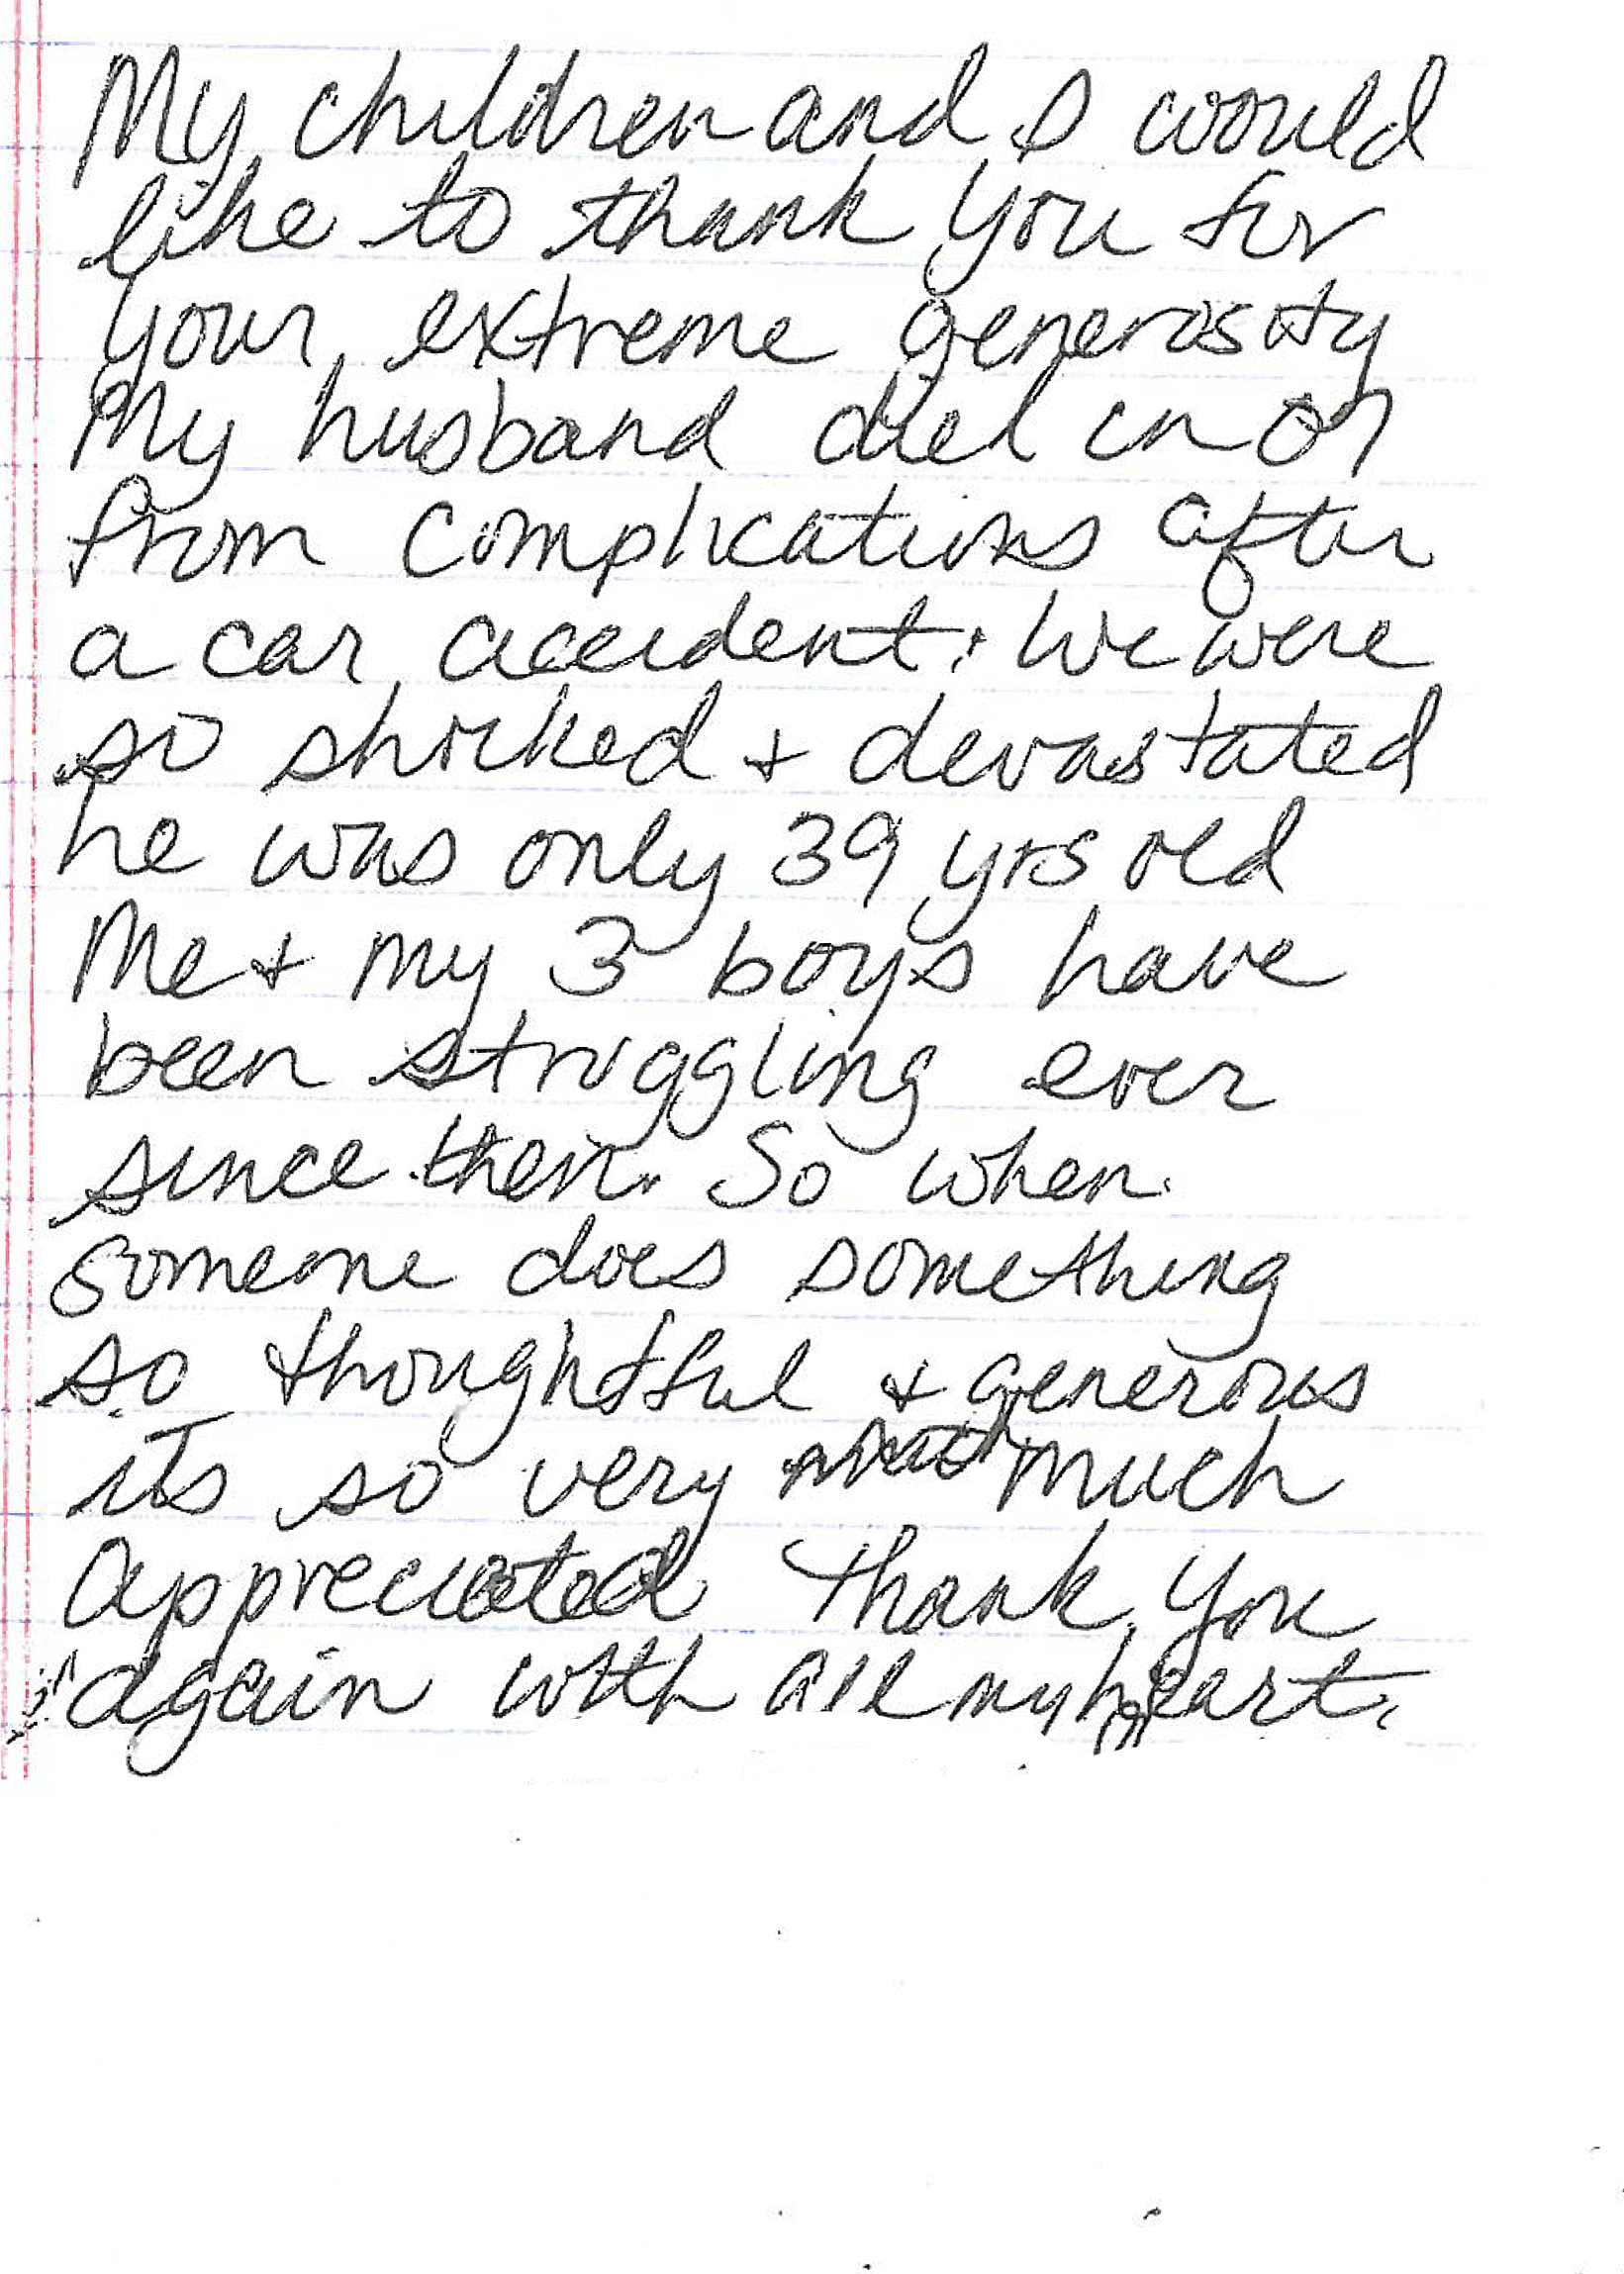 My children and I would
like to thank you for
your extreme generosity
My husband died in 07
from complications after
a car accident. We were
so shocked + devastated
he was only 39 yrs old
Me + my 3 boys have
been struggling ever
since then. So when
someone does something
so thoughtful + generous
it's so very much
appreciated Thank you
again with all my heart.